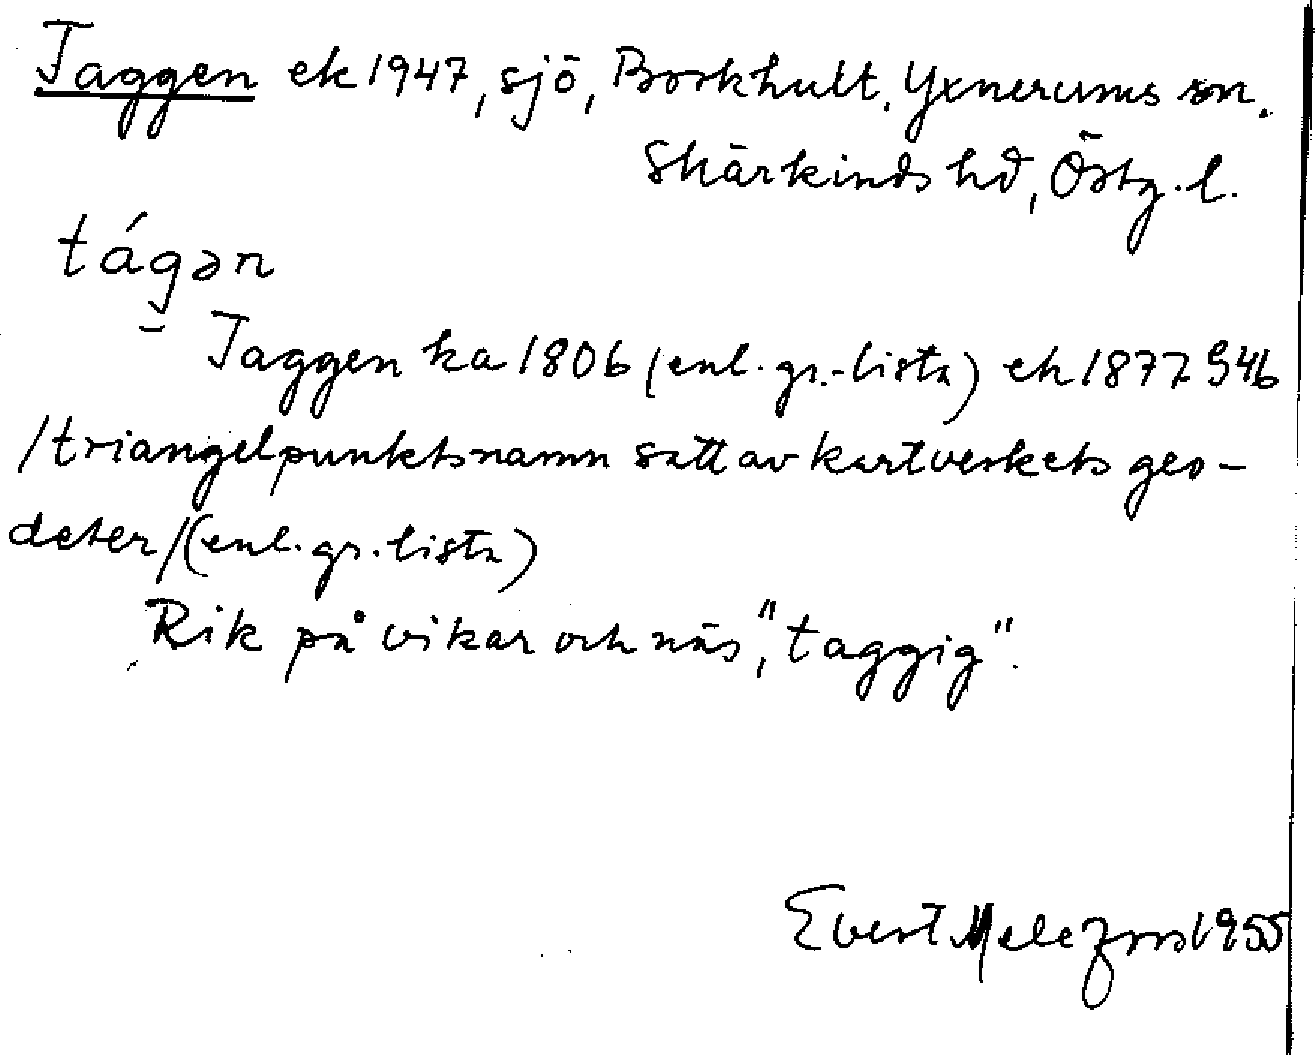 Taggen ek 1947, sjö, Borkhult, Yxnerums sn.
Skärkinds hd, Östg. l.
tágən
Taggen ka 1806 (enl. gr.-lista) ek 1877 S46
/triangelpunktsnamn satt av kartverkets geo-
deter/ (enl. gr. lista)
Rik på vikar och näs, "taggig".
Evert 1955